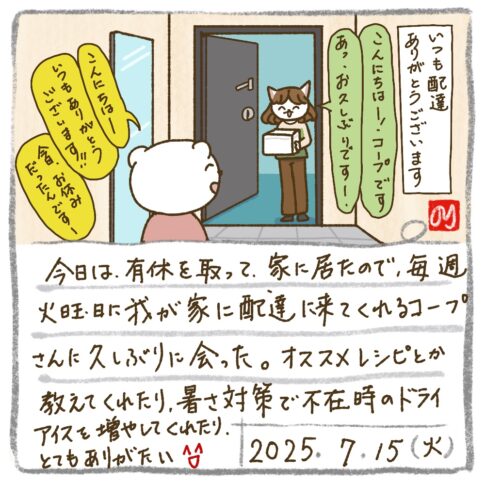 いつも配達
ありがとうございます
こんにちはー！コープです
あっ、お久しぶりですー！
こんにちはー
いつもありがとう
ございます!!
今日、お休み
だったんですー
今日は、有休を取って、家に居たので、毎週
火曜日に我が家に配達に来てくれるコープ
さんに久しぶりに会った。オススメレシピとか
教えてくれたり、暑さ対策で不在時のドライ
アイスを増やしてくれたり、
とてもありがたい
2025. 7. 15 (火)